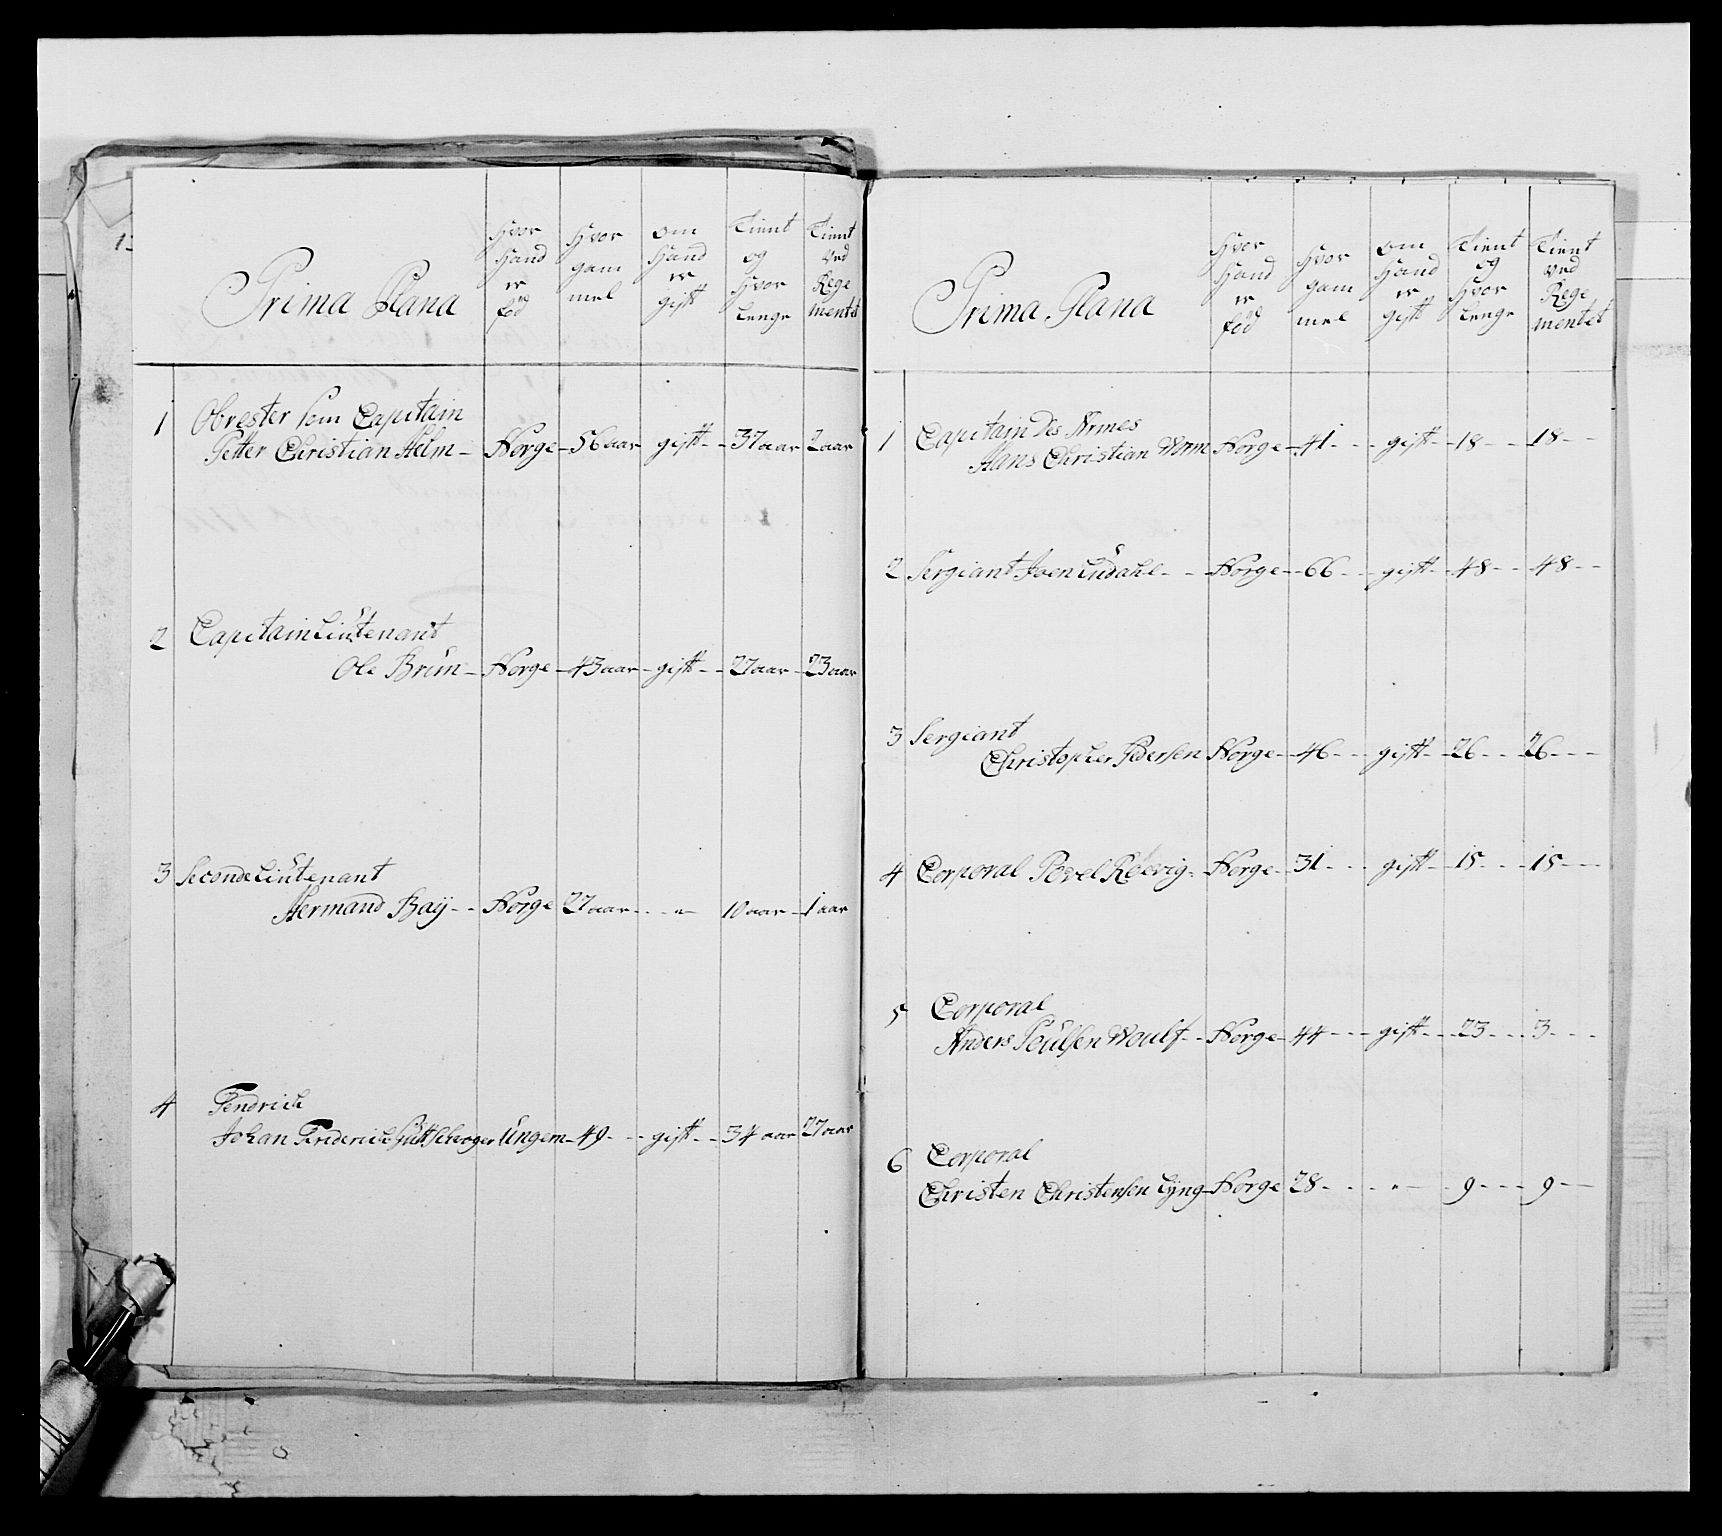 Prima Plana
Hvor Hand er fød
Hvor gam mel
Om Hand er gift
Tient og Hvor Lenge
Tient ved Rege mentet
1 Obrester som Capitain
Petter Christian Helm - Norge - 56 aar gift - 37 aar 2 aar
2 Capitain Lieutenant
Ole Brun - Norge - 43 aar - gift - 27 aar - 23 aar
3 Seconde Lieutenant
Hermand Baÿ - Norge 27 aar - " - 10 aar - 1 aar
4 Fendrich
Johan Friderich Ungern - 49 - gift - 34 aar 27 aar
Prima Plana
Hvor Hand er fød
Hvor gam mel
Om Hand er gift
Tient og Hvor Lenge
Tient ved Rege mentet
1 Capitain des Armes
Hans Christian Worm Norge - 41 - gift - 18 - 18
2 Sergiant Joen Ludahl - Norge - 66 - gift - 48 - 48
3 Sergiant
Christopher Pedersen Norge - 46 - gift - 26 - 26
4 Corporal Povel Røevig - Norge - 31 - gift - 15 - 15
5 Corporal
Anders Poulsen Woulf - Norge - 44 - gift - 23 - 3
6 Corporal
Christen Christensen Lÿng - Norge 28 - " - 9 - 9